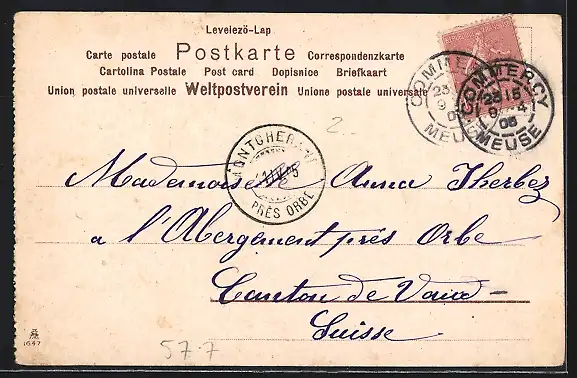 Levelezö-Lap
Carte postale Postkarte Correspondenzkarte
Cartolina Postale Post card Dopisnice Briefkaart
Union postale universelle Weltpostverein Unione postale universale
COMMERCY
MEUSE
COMMERCY
23 15
9 4
05
MEUSE
2.
MONTCHERAND
PRÈS ORBE
Mademoiselle Anna Therbez
a l'Abergement près Orbe
Canton de Vaud
Suisse
57.7
1647